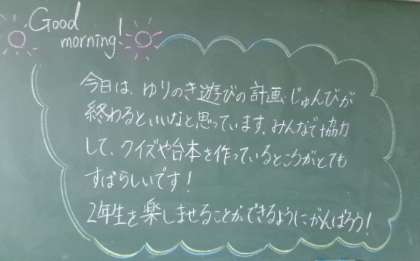 Good
morning!
今日は、ゆりのき遊びの計画、じゅんびが
終わるといいなと思っています。みんなで協力
して、クイズや台本を作っているところがとても
すばらしいです！
2年生を楽しませることができるようにがんばろう！